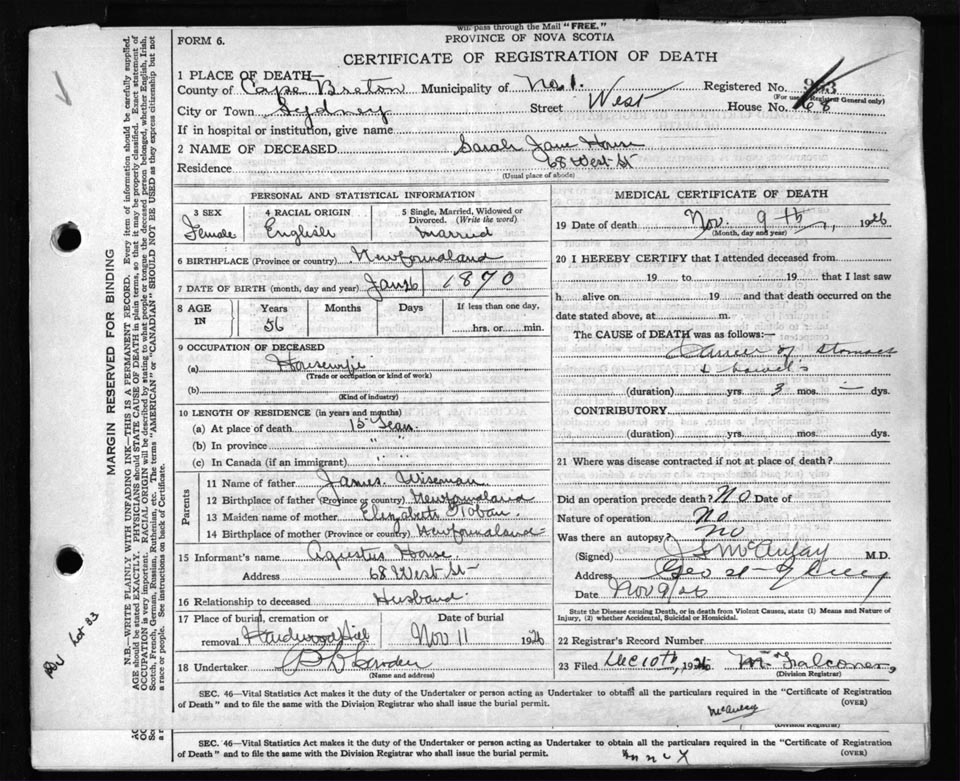 will pass through the Mail "FREE."
PROVINCE OF NOVA SCOTIA
FORM 6.
CERTIFICATE OF REGISTRATION OF DEATH
1 PLACE OF DEATH—
County of Cape Breton Municipality of No 1. Registered No.
(For use of Registrar General only)
City or Town Sydney Street West House No. 68
If in hospital or institution, give name
2 NAME OF DECEASED Sarah Jane House
Residence 68 West St
(Usual place of abode)
PERSONAL AND STATISTICAL INFORMATION
3 SEX Female
4 RACIAL ORIGIN English
5 Single, Married, Widowed or Divorced. (Write the word) Married
6 BIRTHPLACE (Province or country) Newfoundland
7 DATE OF BIRTH (month, day and year) Jan 26 1870
8 AGE IN Years 56 Months Days If less than one day, hrs. or min.
9 OCCUPATION OF DECEASED
(a) Housewife
(Trade or occupation or kind of work)
(b)
(Kind of industry)
10 LENGTH OF RESIDENCE (in years and months)
(a) At place of death 15 Years
(b) In province " "
(c) In Canada (if an immigrant)
Parents
11 Name of father James Wiseman
12 Birthplace of father (Province or country) Newfoundland
13 Maiden name of mother Elizabeth
14 Birthplace of mother (Province or country) Newfoundland
15 Informant's name Agustus House
Address 68 West St
16 Relationship to deceased Husband
17 Place of burial, cremation or removal Hardwood Hill
Date of burial Nov 11 1926
18 Undertaker
(Name and address)
MEDICAL CERTIFICATE OF DEATH
19 Date of death Nov. 9th, 1926
(Month, day and year)
20 I HEREBY CERTIFY that I attended deceased from
19 to 19 that I last saw
h alive on 19 and that death occurred on
date stated above, at m.
The CAUSE OF DEATH was as follows:—
Cancer of Stomach
& bowel's
(duration) yrs. 3 mos. — dys.
CONTRIBUTORY
(duration) yrs. mos. dys.
21 Where was disease contracted if not at place of death?
Did an operation precede death? No Date of
Nature of operation No
Was there an autopsy? No
(Signed) McAulay M.D.
Address Geo St
Date Nov 9/26
State the Disease causing Death, or in death from Violent Causes, state (1) Means and Nature of Injury, (2) whether Accidental, Suicidal or Homicidal.
22 Registrar's Record Number
23 Filed Dec 10th, 1926 Falconer
(Division Registrar)
SEC. 46—Vital Statistics Act makes it the duty of the Undertaker or person acting as Undertaker to obtain all the particulars required in the "Certificate of Registration
of Death" and to file the same with the Division Registrar who shall issue the burial permit. (OVER)
(Division Registrar)
SEC. 46—Vital Statistics Act makes it the duty of the Undertaker or person acting as Undertaker to obtain all the particulars required in the "Certificate of Registration
of Death" and to file the same with the Division Registrar who shall issue the burial permit. (OVER)
MARGIN RESERVED FOR BINDING
N.B.—WRITE PLAINLY WITH UNFADING INK—THIS IS A PERMANENT RECORD. Every item of information should be carefully supplied.
AGE should be stated EXACTLY. PHYSICIANS should STATE CAUSE OF DEATH in plain terms, so that it may be properly classified. Exact statement of
OCCUPATION is very important. RACIAL ORIGIN will be described by stating to what people or tongue the deceased person belonged, whether English, Irish,
Scotch, French, German, Russian, Ruthenian, etc. The terms "AMERICAN" or "CANADIAN" SHOULD NOT BE USED as they express citizenship but not
a race or people. See instructions on back of Certificate.
Lot 33